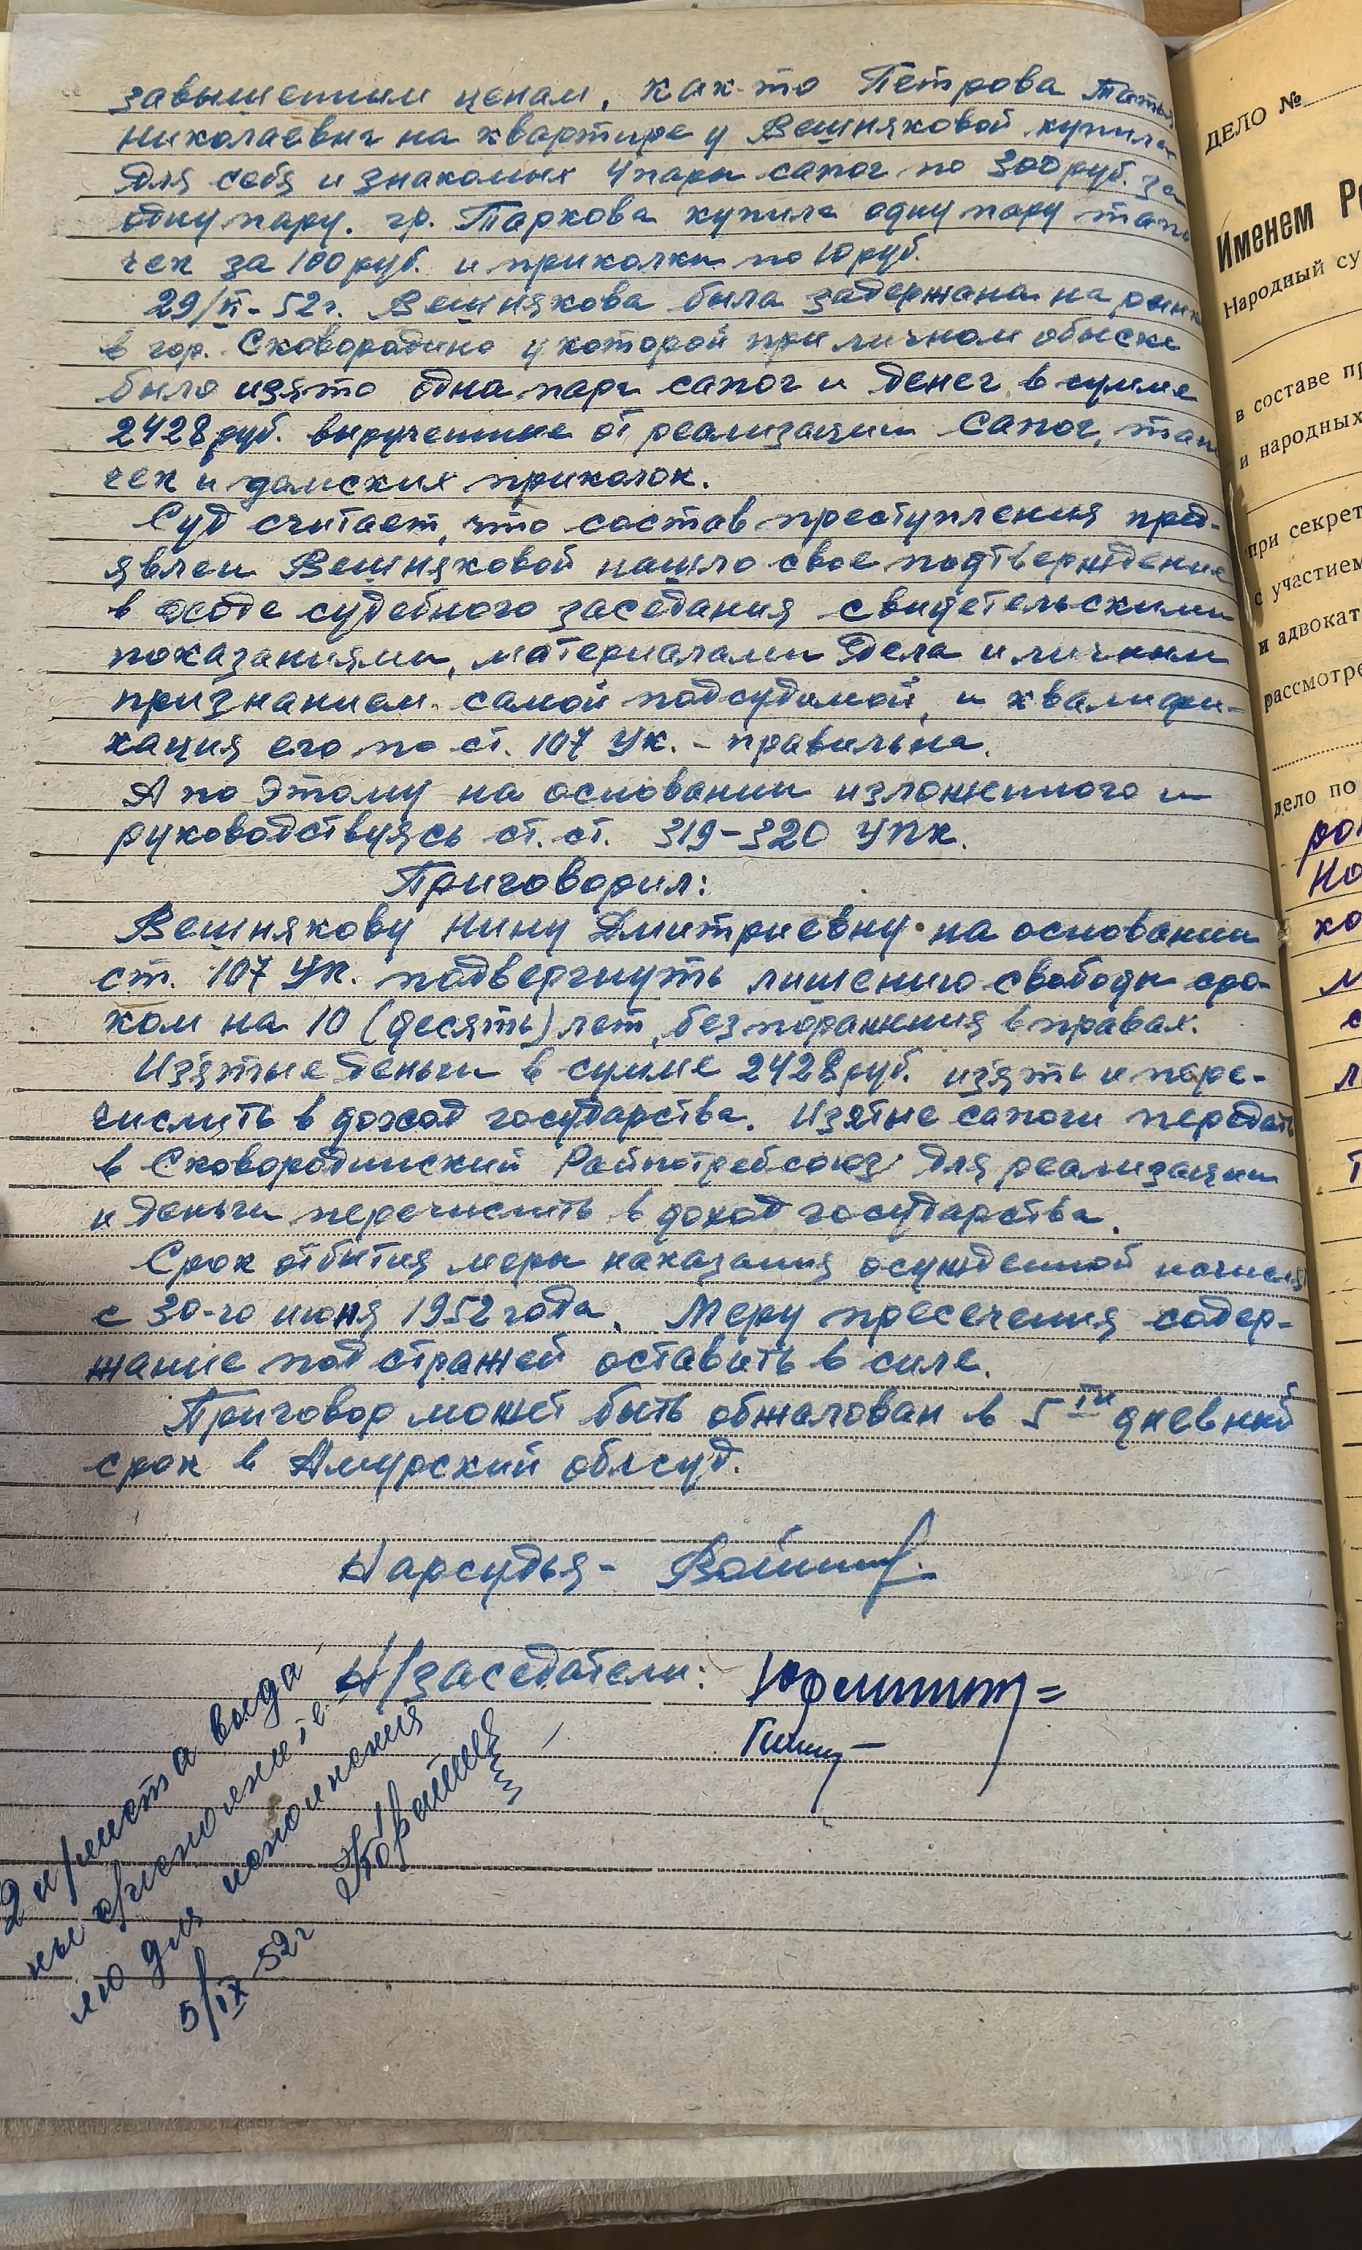 завышенным ценам, как-то Петрова
Николаевна на квартире у Вешняковой купила
для себя и знакомых 4 пары сапог по 300 руб. за
одну пару. гр. Таркова купила одну пару тапо
чек за 100 руб. и приколки по 10 руб.
29/VI-52 г. Вешнякова была задержана на рынк
в гор. Сковородино у которой при личном обыске
было изято одна пара сапог и денег в сумме
2428 руб. вырученные от реализации сапог, тапо
чек и дамских приколок.
Суд считает, что состав преступления пред-
явлен Вешняковой нашло свое подтверждение
в ходе судебного заседания свидетельскими
показаниями, материалами дела и личным
признанием самой подсудимой, и квалифи-
кация его по ст. 107 УК. - правильна.
А по этому на основании изложенного и
руководствуясь ст. ст. 319-320 УПК.
Приговорил:
Вешнякову Нину Дмитриевну на основании
ст. 107 УК. подвергнуть лишению свободы сро-
ком на 10 (десять) лет, без поражения в правах.
Изятые деньги в сумме 2428 руб. изять и пере-
числить в доход государства. Изятые сапоги передать
в Сковородинский Райпотребсоюз для реализации
и деньги перечислить в доход государства.
Срок отбытия меры наказания осужденной исчисля
с 30-го июня 1952 года. Меру пресечения содер-
жание под стражей оставить в силе.
Приговор может быть обжалован в 5 ти дневный
срок в Амурский облсуд.
Нарсудья-
Н/заседатели:
2 и/листа выда
ны исполните
лю для исполнения
5/IX-52 г
ДЕЛО №
Именем Р
Народный су
в составе пр
и народных
при секрет
с участием
и адвокат
рассмотре
дело по